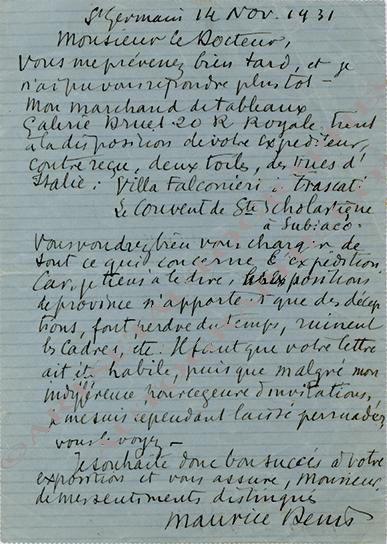 St Germain 14 Nov. 1931
Monsieur le Docteur,
Vous me prévenez bien tard, et je
n'ai pu vous répondre plus tôt —
Mon marchand de tableaux
Galerie Druet 20 R Royale tient
à la disposition de votre expéditeur,
contre reçu, deux toiles, des vues d'
Italie : Villa Falconieri à Frascati
Le Couvent de Ste Scholastique
à Subiaco.
Vous voudrez bien vous charger de
tout ce qui concerne l'expédition.
Car, je tiens à le dire, les expositions
de province n'apportent que des décep
tions, font perdre du temps, ruinent
les cadres, etc. Il faut que votre lettre
ait été habile, puis que malgré mon
indifférence pour ce genre d'invitations,
je me suis cependant laissé persuader,
vous le voyez —
Je souhaite donc bon succès à votre
exposition et vous assure, Monsieur
de mes sentiments distingués
Maurice Denis